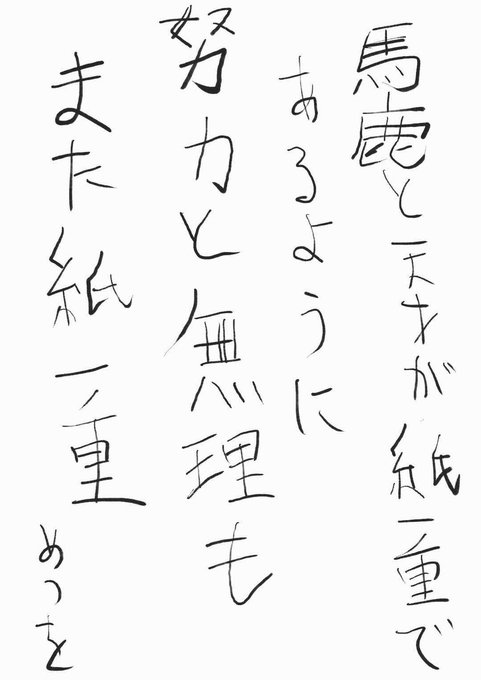 馬鹿と天才が紙一重で
あるように
努力と無理も
また紙一重
めつを